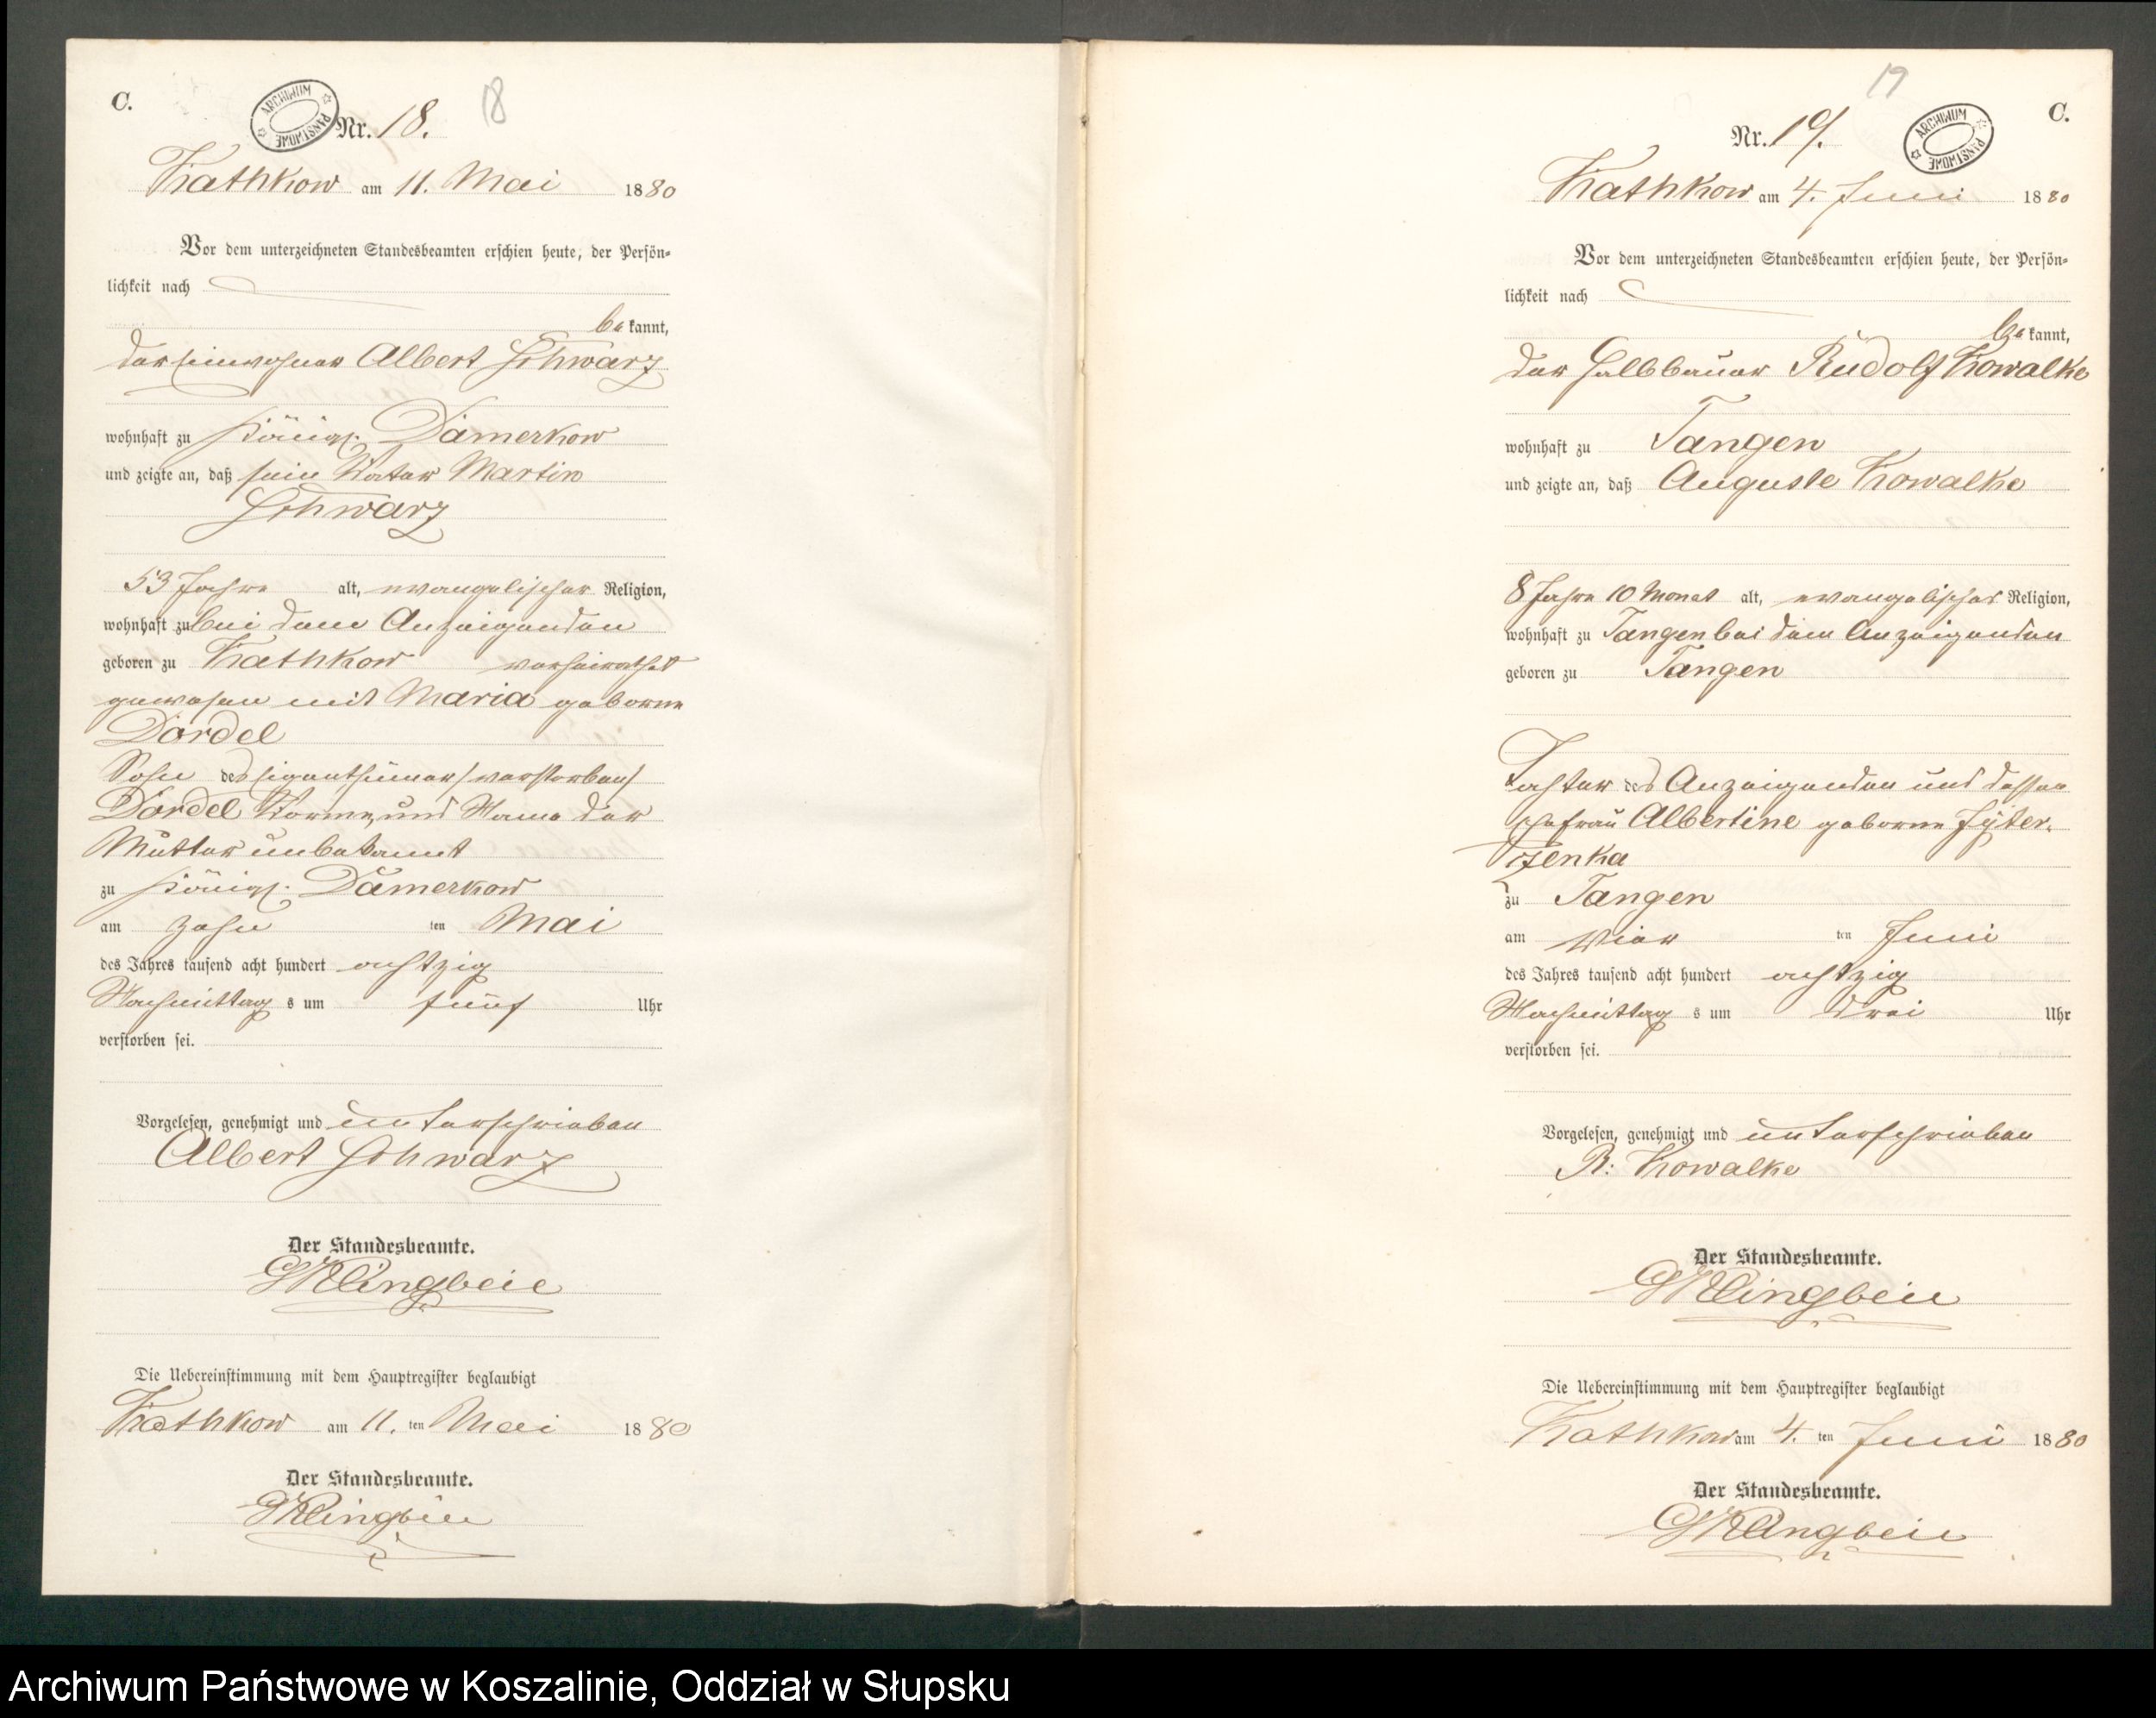 C.
ARCHIWUM PAŃSTWOWE
Nr. 18.
18
Kathkow am 11. Mai 1880
Vor dem unterzeichneten Standesbeamten erschien heute, der Persön-
lichkeit nach
bekannt,
der Einwohner Albert Schwarz
wohnhaft zu Königl. Damerkow
und zeigte an, daß sein Vater Martin
Schwarz
53 Jahre alt, evangelischer Religion,
wohnhaft zu bei dem Anzeigenden
geboren zu Kathkow verheirathet
gewesen mit Maria geborne
Dordel
Sohn des Eigenthümer verstorben
Dordel Vorname und Name der
Mutter unbekannt
zu Königl. Damerkow
am zehn ten Mai
des Jahres tausend acht hundert achtzig
Nachmittag s um fünf Uhr
verstorben sei.
Vorgelesen, genehmigt und unterschrieben
Albert Schwarz
Der Standesbeamte.
Klingbeil
Die Uebereinstimmung mit dem Hauptregister beglaubigt
Kathkow am 11. ten Mai 1880
Der Standesbeamte.
Klingbeil
19
C.
Nr. 19.
ARCHIWUM PAŃSTWOWE
Kathkow am 4. Juni 1880
Vor dem unterzeichneten Standesbeamten erschien heute, der Persön-
lichkeit nach
bekannt,
der Halbbauer Rudolf Kowalke
wohnhaft zu Tangen
und zeigte an, daß Auguste Kowalke
8 Jahre 10 Monat alt, evangelischer Religion,
wohnhaft zu Tangen bei dem Anzeigenden
geboren zu Tangen
Tochter des Anzeigenden und dessen
Ehefrau Albertine geborne
zu Tangen
am Vier ten Juni
des Jahres tausend acht hundert achtzig
Nachmittag s um drei Uhr
verstorben sei.
Vorgelesen, genehmigt und unterschrieben
R: Kowalke
Der Standesbeamte.
Klingbeil
Die Uebereinstimmung mit dem Hauptregister beglaubigt
Kathkow am 4. ten Juni 1880
Der Standesbeamte.
Klingbeil
Archiwum Państwowe w Koszalinie, Oddział w Słupsku